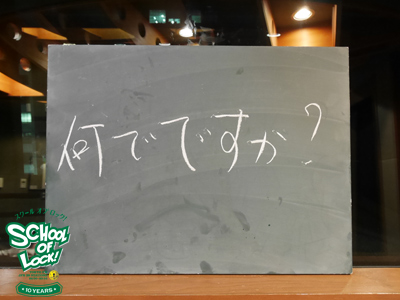 何でですか?
スクール オブ ロック!
SCHOOL
OF
LOCK!
★10 YEARS★